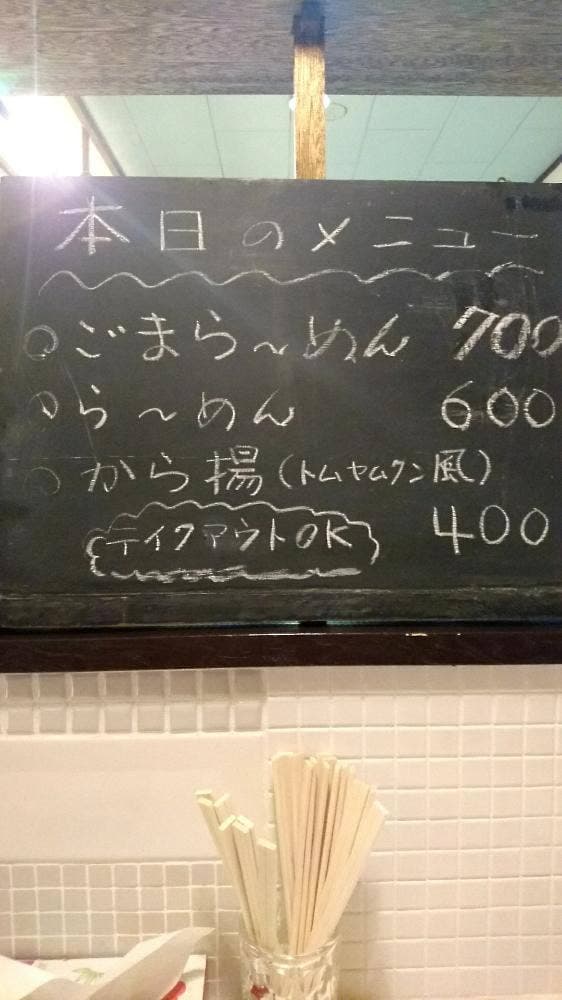 本日のメニュー
○ごまら～めん 700
○ら～めん 600
○から揚(トムヤムクン風)
400
テイクアウトOK